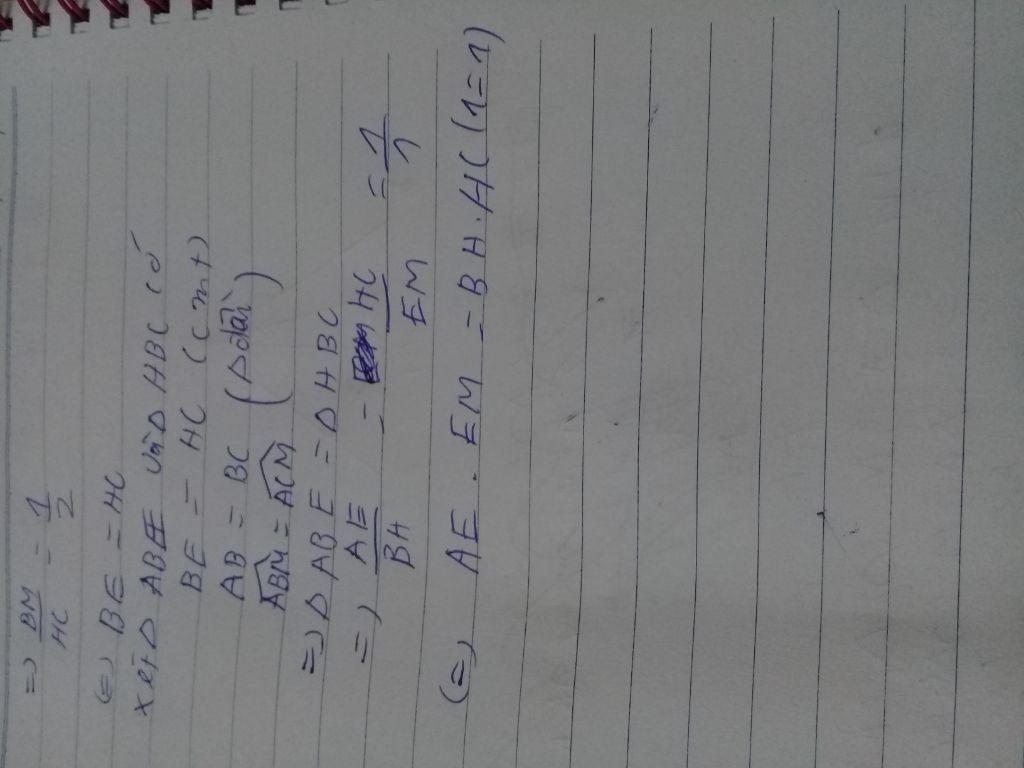 => BM/HC = 1/2
(=) BE = HC
xét Δ ABE và Δ HBC có
BE = HC (cmt)
AB = BC (Δ đều)
ABM = ACM
=> Δ ABE = Δ HBC
=> AE/BH = HC/EM = 1/1
(=) AE . EM = BH . HC (1=1)